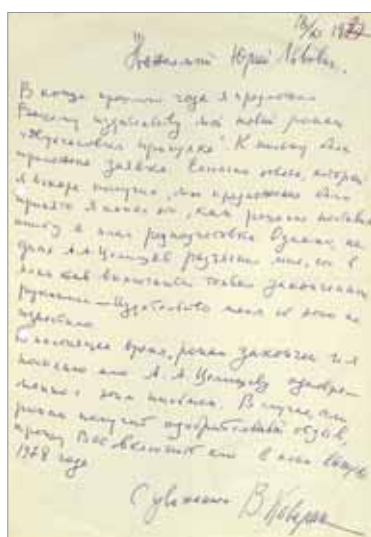 1977
Уважаемый Юрий Львович,
В конце прошлого года я предложил
Вашему издательству мой новый роман
К письму была
приложена заявка. Согласно ответу, который
я вскоре получил, мое предложение было
принято. Я понял его, как решение поставить
книгу в план редподготовки. Однако, на
днях А.А. Целищев разъяснил мне, что в
план как включаются только законченные
рукописи — Издательство меня об этом не
известило.
В настоящее время, роман закончен и я
посылаю его А.А. Целищеву одновре-
менно с этим письмом. В случае, если
роман получит одобрительный отзыв,
прошу Вас включить его в план выпуска
1978 года
С уважением В. Каверин